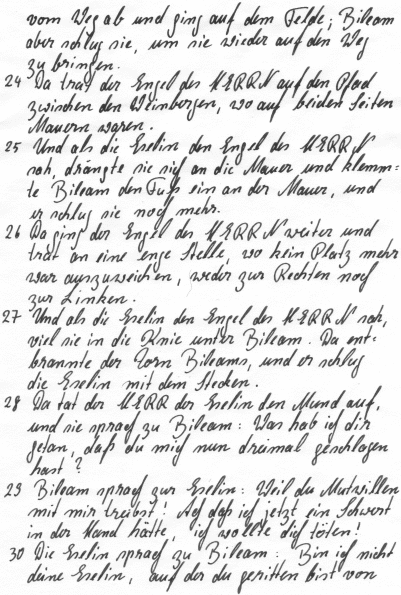 vom Weg ab und ging auf dem Felde; Bileam
aber schlug sie, um sie wieder auf den Weg
zu bringen.
24 Da trat der Engel des HERRN auf den Pfad
zwischen den Weinbergen, wo auf beiden Seiten
Mauern waren.
25 Und als die Eselin den Engel des HERRN
sah, drängte sie sich an die Mauer und klemm=
te Bileam den Fuß ein an der Mauer, und
er schlug sie noch mehr.
26 Da ging der Engel des HERRN weiter und
trat an eine enge Stelle, wo kein Platz mehr
war auszuweichen, weder zur Rechten noch
zur Linken.
27 Und als die Eselin den Engel des HERRN sah,
viel sie in die Knie unter Bileam. Da ent-
brannte der Zorn Bileams, und er schlug
die Eselin mit dem Stecken.
28 Da tat der HERR der Eselin den Mund auf,
und sie sprach zu Bileam: Was hab ich dir
getan, daß du mich nun dreimal geschlagen
hast?
29 Bileam sprach zur Eselin: Weil du Mutwillen
mit mir treibst! Ach daß ich jetzt ein Schwert
in der Hand hätte, ich wollte dich töten!
30 Die Eselin sprach zu Bileam: Bin ich nicht
deine Eselin, auf der du geritten bist von